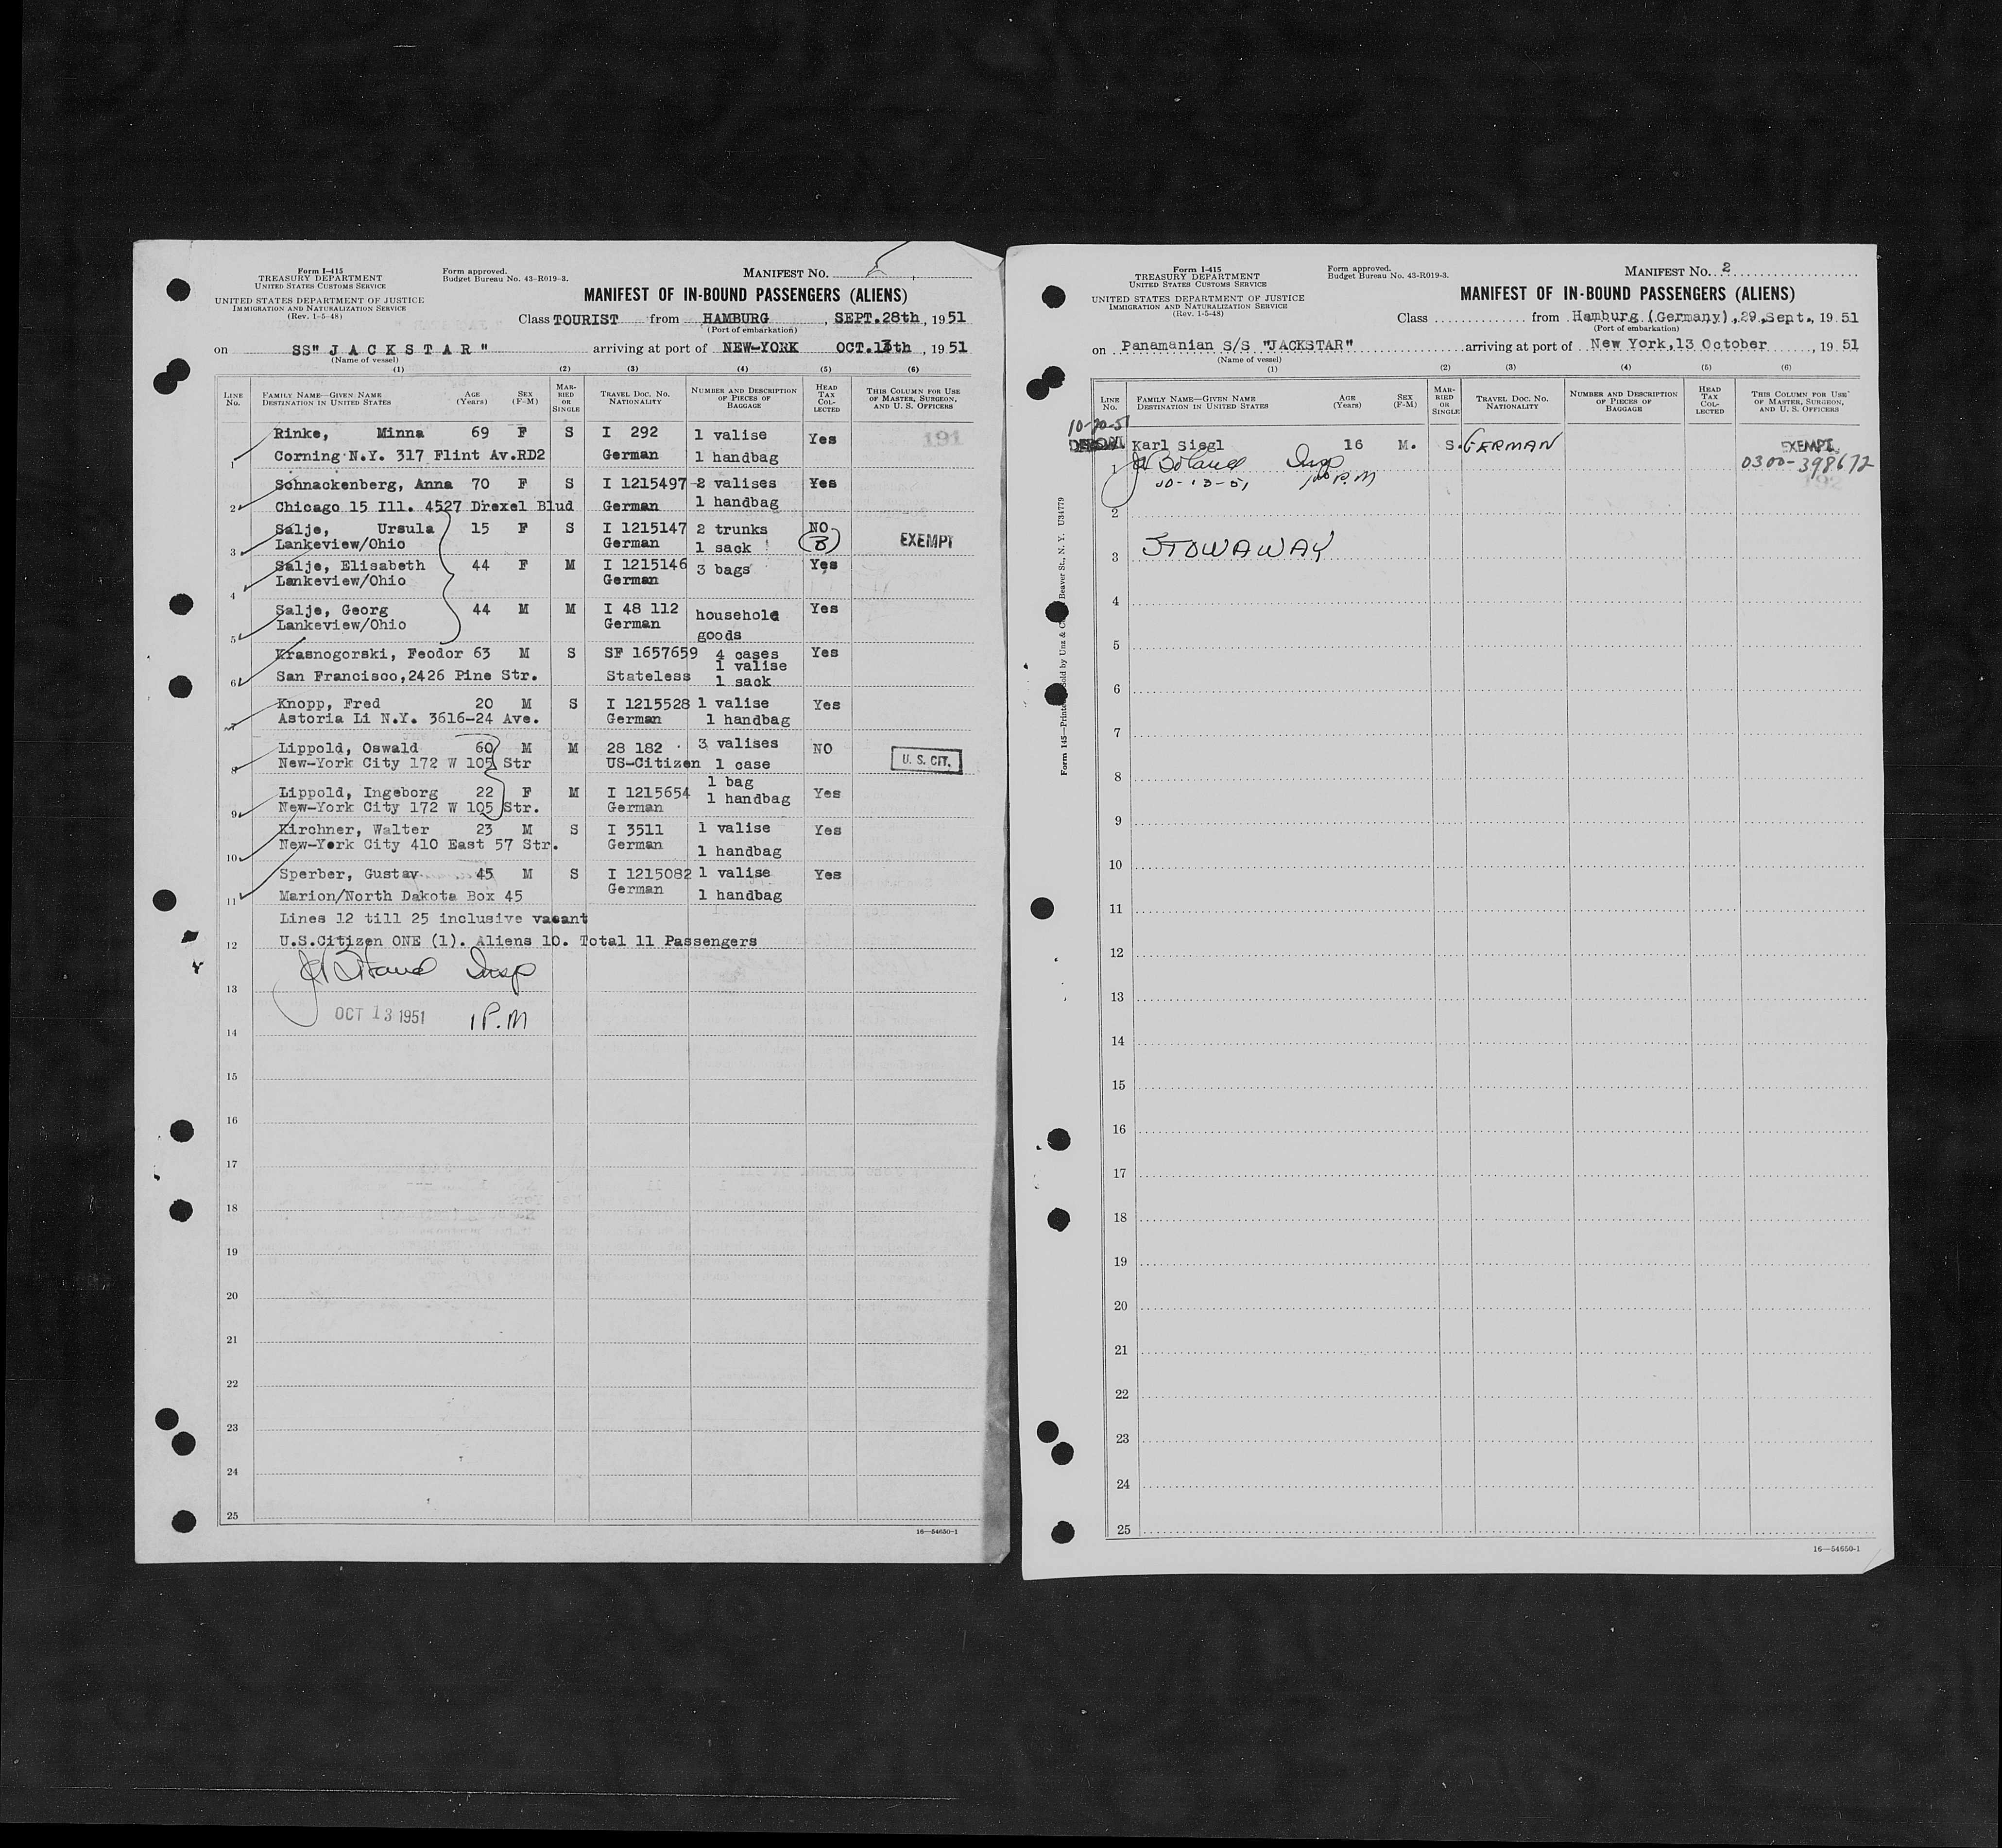 Form I-415
TREASURY DEPARTMENT
UNITED STATES CUSTOMS SERVICE
UNITED STATES DEPARTMENT OF JUSTICE
IMMIGRATION AND NATURALIZATION SERVICE
(Rev. 1-5-48)
Form approved.
Budget Bureau No. 43-R019-3.
MANIFEST NO.
MANIFEST OF IN-BOUND PASSENGERS (ALIENS)
Class TOURIST from HAMBURG, SEPT.28th, 1951
(Port of embarkation)
on SS" J A C K S T A R " arriving at port of NEW-YORK OCT.13th, 1951
(Name of vessel)
(1) (2) (3) (4) (5) (6)
LINE No. FAMILY NAME—GIVEN NAME DESTINATION IN UNITED STATES AGE (Years) SEX (F-M) MARRIED OR SINGLE TRAVEL DOC. NO. NATIONALITY NUMBER AND DESCRIPTION OF PIECES OF BAGGAGE HEAD TAX COLLECTED THIS COLUMN FOR USE OF MASTER, SURGEON, AND U. S. OFFICERS
Rinke, Minna 69 F S I 292 1 valise Yes 191
1 Corning N.Y. 317 Flint Av.RD2 German 1 handbag
Schnackenberg, Anna 70 F S I 1215497 2 valises Yes
2 Chicago 15 Ill. 4527 Drexel Blud German 1 handbag
Salje, Ursula 15 F S I 1215147 2 trunks NO
3 Lankeview/Ohio German 1 sack EXEMPT
Salje, Elisabeth 44 F M I 1215146 3 bags Yes
4 Lankeview/Ohio German
Salje, Georg 44 M M I 48 112 household Yes
5 Lankeview/Ohio German goods
Krasnogorski, Feodor 63 M S SF 1657659 4 cases Yes
1 valise
6 San Francisco,2426 Pine Str. Stateless 1 sack
Knopp, Fred 20 M S I 1215528 1 valise Yes
7 Astoria Li N.Y. 3616-24 Ave. German 1 handbag
Lippold, Oswald 60 M M 28 182 3 valises NO
8 New-York City 172 W 105 Str US-Citizen 1 case U. S. CIT.
1 bag
Lippold, Ingeborg 22 F M I 1215654 1 handbag Yes
9 New-York City 172 W 105 Str. German
Kirchner, Walter 23 M S I 3511 1 valise Yes
10 New-York City 410 East 57 Str. German 1 handbag
Sperber, Gustav 45 M S I 1215082 1 valise Yes
11 Marion/North Dakota Box 45 German 1 handbag
Lines 12 till 25 inclusive vacant
12 U.S.Citizen ONE (1). Aliens 10. Total 11 Passengers
Insp
13
OCT 13 1951 1 P.M
14
15
16
17
18
19
20
21
22
23
24
25
16—54650-1
Form I-415
TREASURY DEPARTMENT
UNITED STATES CUSTOMS SERVICE
UNITED STATES DEPARTMENT OF JUSTICE
IMMIGRATION AND NATURALIZATION SERVICE
(Rev. 1-5-48)
Form approved.
Budget Bureau No. 43-R019-3.
MANIFEST NO. 2
MANIFEST OF IN-BOUND PASSENGERS (ALIENS)
Class from Hamburg (Germany), 29.Sept., 1951
(Port of embarkation)
on Panamanian S/S "JACKSTAR" arriving at port of New York,13 October, 1951
(Name of vessel)
(1) (2) (3) (4) (5) (6)
LINE No. FAMILY NAME—GIVEN NAME DESTINATION IN UNITED STATES AGE (Years) SEX (F-M) MARRIED OR SINGLE TRAVEL DOC. NO. NATIONALITY NUMBER AND DESCRIPTION OF PIECES OF BAGGAGE HEAD TAX COLLECTED THIS COLUMN FOR USE OF MASTER, SURGEON, AND U. S. OFFICERS
10-20-51
Karl Siegl 16 M. S. GERMAN EXEMPT
1 Insp 0300-398672
10-13-51 P.M 192
2
3 STOWAWAY
4
5
6
7
8
9
10
11
12
13
14
15
16
17
18
19
20
21
22
23
24
25
Form 145—Printed Sold by Unz & Co. Beaver St., N. Y. U34779
16—54650-1